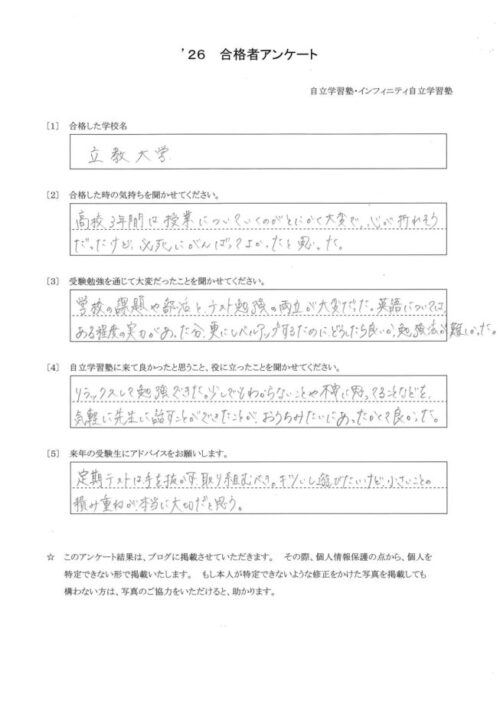 '26 合格者アンケート
自立学習塾・インフィニティ自立学習塾
[1] 合格した学校名
立教大学
[2] 合格した時の気持ちを聞かせてください。
高校3年間は授業についていくのがとにかく大変で、心が折れそう
だったけど、必死にがんばってよかったと思った。
[3] 受験勉強を通じて大変だったことを聞かせてください。
学校の課題や部活と、テスト勉強の両立が大変だった。英語については、
ある程度の実力があった分、更にレベルアップするために、どうしたら良いか、勉強法が難しかった。
[4] 自立学習塾に来て良かったと思うこと、役に立ったことを聞かせてください。
リラックスして勉強できた。少しでもわからないことや不安に思ってることなどを、
気軽に先生に話すことができたことが、おうちみたいにあったかくて良かった。
[5] 来年の受験生にアドバイスをお願いします。
定期テストは手を抜かず取り組むべき。キツいし遊びたいけど、小さいことの
積み重ねが本当に大切だと思う。
☆ このアンケート結果は、ブログに掲載させていただきます。 その際、個人情報保護の点から、個人を
特定できない形で掲載いたします。 もし本人が特定できないような修正をかけた写真を掲載しても
構わない方は、写真のご協力をいただけると、助かります。